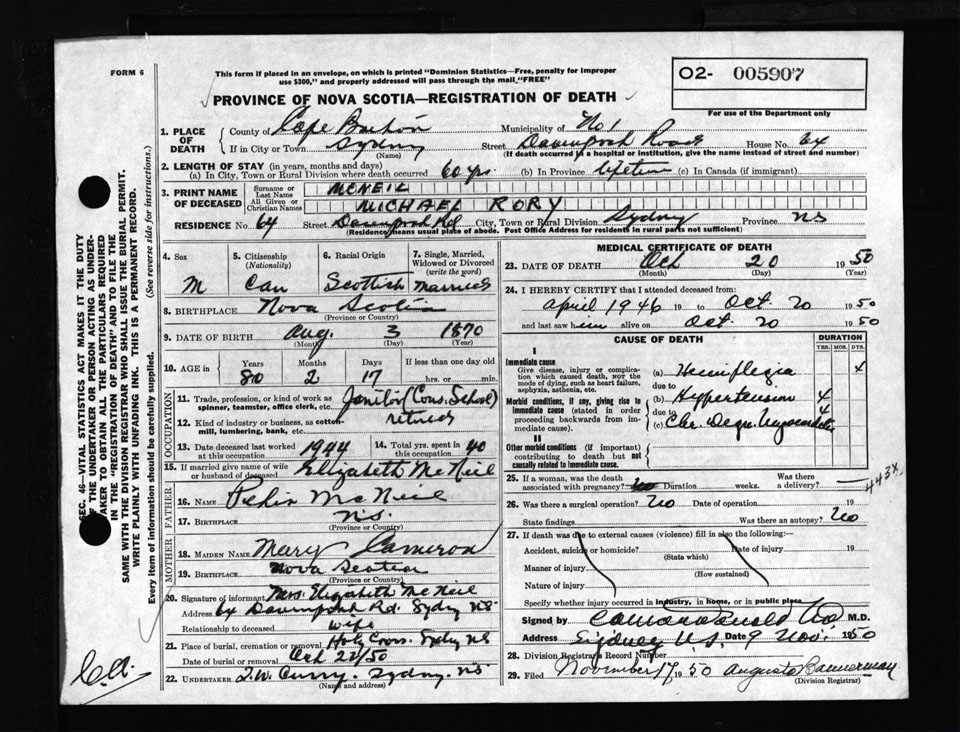 FORM 6
This form if placed in an envelope, on which is printed "Dominion Statistics—Free, penalty for improper
use $300," and properly addressed will pass through the mail "FREE"
O2- 005907
For use of the Department only
PROVINCE OF NOVA SCOTIA—REGISTRATION OF DEATH
1. PLACE OF DEATH County of Cape Breton Municipality of No 1
If in City or Town Sydney (Name) Street Davenport Road House No. 64
(If death occurred in a hospital or institution, give the name instead of street and number)
2. LENGTH OF STAY (in years, months and days)
(a) In City, Town or Rural Division where death occurred 60 yrs. (b) In Province lifetime (c) In Canada (if immigrant)
3. PRINT NAME OF DECEASED Surname or Last Name MCNEIL
All Given or Christian Names MICHAEL RORY
RESIDENCE No. 64 Street Davenport Rd City, Town or Rural Division Sydney Province NS
(Residence means usual place of abode. Post Office Address for residents in rural parts not sufficient)
4. Sex M
5. Citizenship (Nationality) Can
6. Racial Origin Scottish
7. Single, Married, Widowed or Divorced (write the word) Married
8. BIRTHPLACE Nova Scotia
(Province or Country)
9. DATE OF BIRTH Aug. 3 1870
(Month) (Day) (Year)
10. AGE in Years 80 Months 2 Days 17 If less than one day old hrs. or min.
OCCUPATION
11. Trade, profession or kind of work as spinner, teamster, office clerk, etc. Janitor (Cons. School)
12. Kind of industry or business, as cotton-mill, lumbering, bank, etc. retired
13. Date deceased last worked at this occupation 1944 14. Total yrs. spent in this occupation 40
15. If married give name of wife or husband of deceased Elizabeth McNeil
FATHER
16. NAME McNeil
17. BIRTHPLACE N.S.
(Province or Country)
MOTHER
18. MAIDEN NAME Mary Cameron
19. BIRTHPLACE Nova Scotia
(Province or Country)
20. Signature of informant Mrs. Elizabeth McNeil
Address 64 Davenport Rd. Sydney NS
Relationship to deceased wife
21. Place of burial, cremation or removal Holy Cross. Sydney NS
Date of burial or removal Oct 22/50
22. UNDERTAKER T.W. Curry. Sydney. NS
(Name and address)
MEDICAL CERTIFICATE OF DEATH
23. DATE OF DEATH Oct 20 1950
(Month) (Day) (Year)
24. I HEREBY CERTIFY that I attended deceased from:
April 1946 19 to Oct. 20 1950
and last saw him alive on Oct. 20 1950
CAUSE OF DEATH DURATION
YRS. MOS. DYS.
I
Immediate cause
Give disease, injury or complication which caused death, NOT the mode of dying, such as heart failure, asphyxia, asthenia, etc.
(a) Hemiplegia x
due to
Morbid conditions, if any, giving rise to immediate cause (stated in order proceeding backwards from immediate cause).
(b) Hypertension 4
due to 4
(c) Chr. Degn. Myocarditis
II
Other morbid conditions (if important) contributing to death but not causally related to immediate cause.
443X
25. If a woman, was the death associated with pregnancy? no Duration weeks. Was there a delivery?
26. Was there a surgical operation? No Date of operation 19
State findings Was there an autopsy? No
27. If death was due to external causes (violence) fill in also the following:—
Accident, suicide or homicide? (State which) Date of injury 19
Manner of injury (How sustained)
Nature of injury
Specify whether injury occurred in industry, in home, or in public place
Signed by M.D.
Address Sydney N.S. Date 9 Nov. 1950
28. Division Registrar's Record Number
29. Filed November 17 1950 Augusta Bannerman
(Division Registrar)
SEC. 46—VITAL STATISTICS ACT MAKES IT THE DUTY
OF THE UNDERTAKER OR PERSON ACTING AS UNDER-
TAKER TO OBTAIN ALL THE PARTICULARS REQUIRED
IN THE "REGISTRATION OF DEATH" AND TO FILE THE
SAME WITH THE DIVISION REGISTRAR WHO SHALL ISSUE THE BURIAL PERMIT.
WRITE PLAINLY WITH UNFADING INK. THIS IS A PERMANENT RECORD.
Every item of information should be carefully supplied. (See reverse side for instructions.)